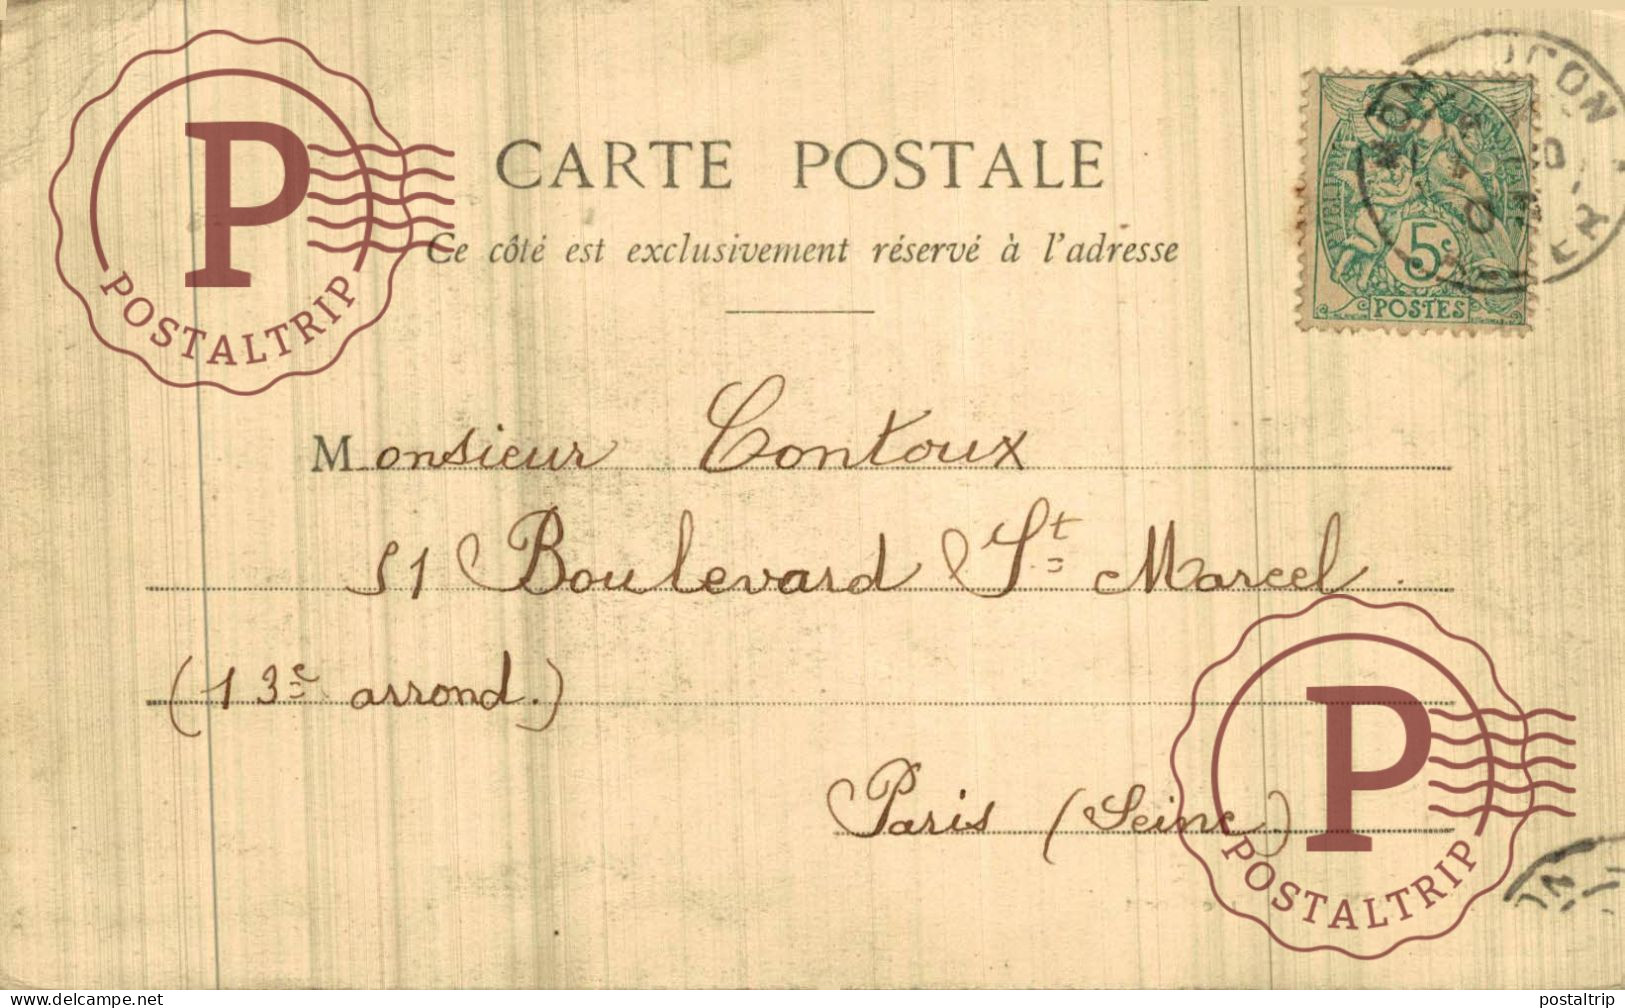 CARTE POSTALE
Ce côté est exclusivement réservé à l'adresse
P
POSTALTRIP
5c
POSTES
Monsieur Contoux
51 Boulevard St Marcel.
(13e arrond.)
Paris (Seine)
P
POSTALTRIP
delcampe.net
postaltrip